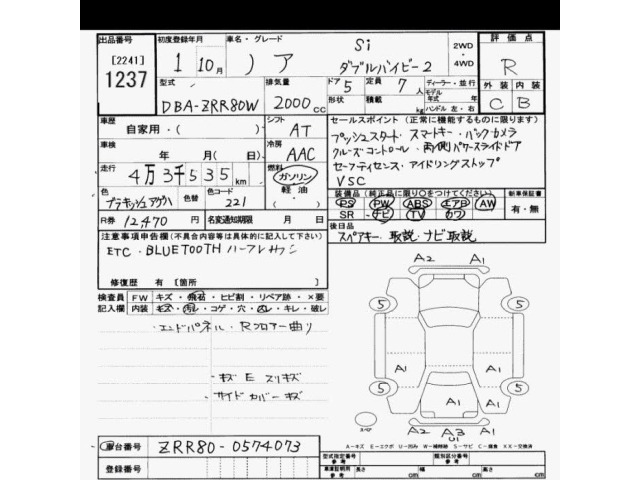 出品番号 初度登録年月 車名・グレード 評価点
[2241] 1 10月 ノア Si ダブルバイビー2 2WD・4WD R
1237 型式 排気量 ドア 定員 ディーラー・並行 外装 内装
DBA-ZRR80W 2000cc 5 7人 モデル年式 年
形状 積載 kg ハンドル 左・右 C B
車歴 シフト セールスポイント(正常に機能するものに限ります)
自家用・( ) AT プッシュスタート スマートキー・バックカメラ
車検 冷房 クルーズコントロール・両側パワースライドドア
年 月(日) AAC セーフティセンス・アイドリングストップ
走行 燃料 VSC
4万3千535km ガソリン・軽油・( )
装備品(純正品に限り○をつけてください) 新車保証書
色 色替 色コード PS PW ABS エアB AW 有・無
221 SR ナビ TV カワ
R券 12,470円 名変通知期限 月 日 後日品
注意事項申告欄(不具合内容等は具体的に記入して下さい) スペアキー・取説・ナビ取説
ETC・BLUETOOTH
修復歴 有 [箇所 ]
検査員 FW キズ・飛石・ヒビ割・リペア跡・×要
記入欄 内装 キズ・汚レ・コゲ・穴・凹レ・キレ・破レ
・エンドパネル・Rフロアー曲り
・キズ E スリキズ
・サイドカバーキズ
A2 A1
5 5
A1 A1
A1 A1
5 5
A1 A1
A2 A3 A1
U1
スペア
A-キズ E-エクボ U-凹み W-補修跡 S-サビ C-腐食 XX-交換済
車台番号 ZRR80-0574073
型式指定番号 参考 類別区分番号 参考
登録番号 車庫証明用 参考 長さ cm 幅 cm 高さ cm